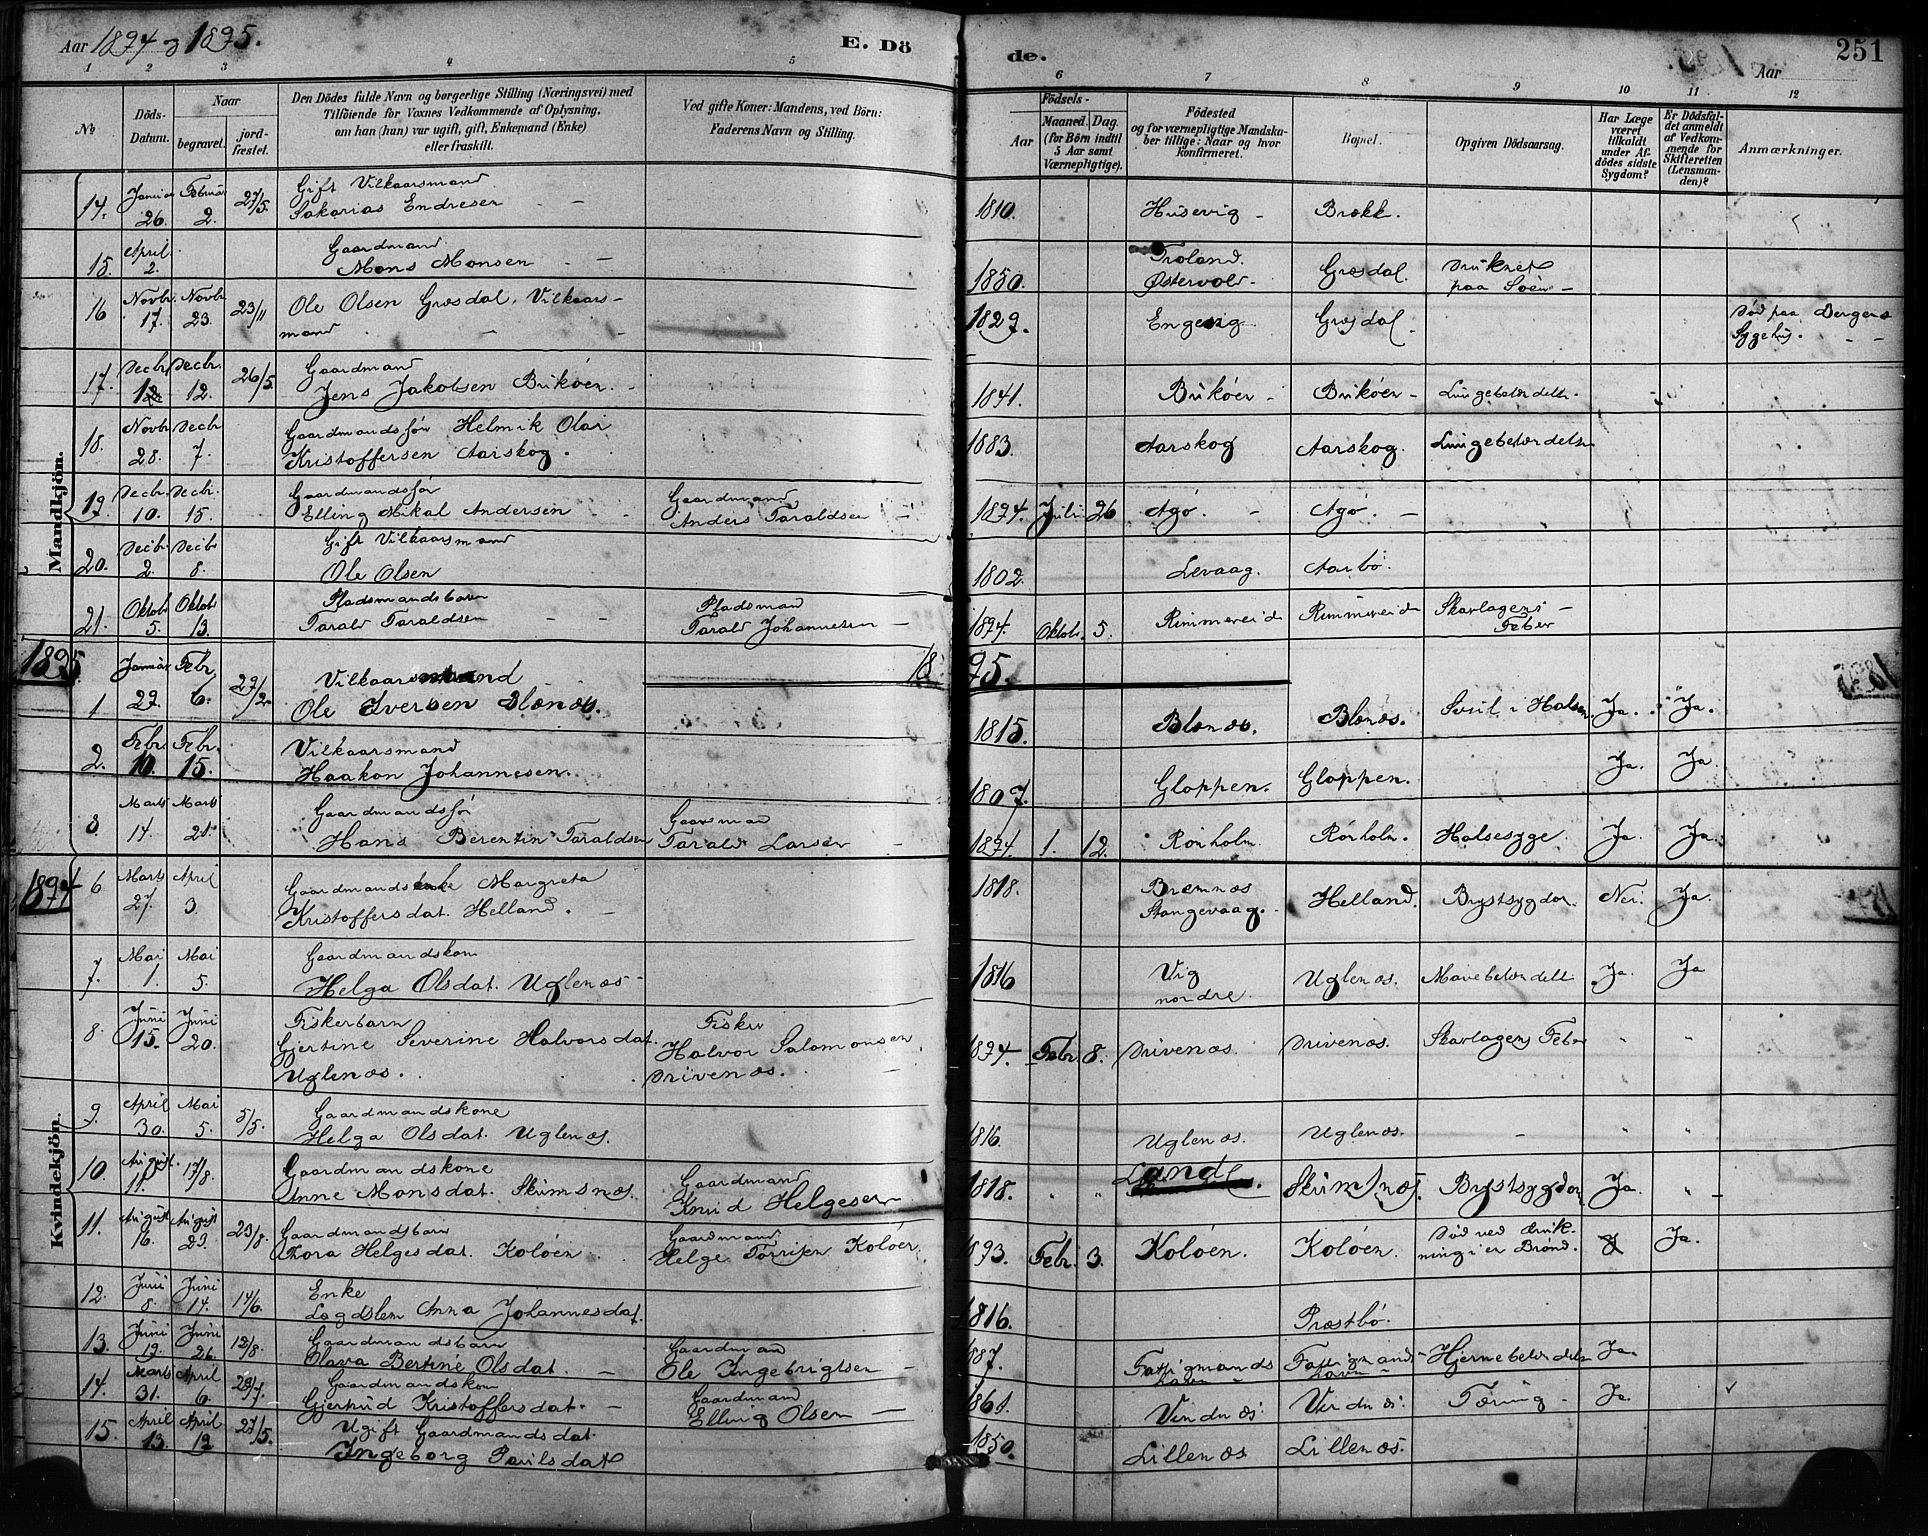 Aar 1894 og 1895. E. Dö de. Aar 251
1 2 3 4 5 6 7 8 9 10 11 12
No
Döds-Datum.
Naar begravet. jordfæstet.
Den Dödes fulde Navn og borgerlige Stilling (Næringsvei) med
Tilföiende for Voxnes Vedkommende af Oplysning,
om han (hun) var ugift, gift, Enkemand (Enke)
eller fraskilt.
Ved gifte Koner: Mandens, ved Börn:
Faderens Navn og Stilling.
Födsels-
Aar Maaned. Dag.
(for Börn indtil
5 Aar samt
Værnepligtige).
Födested
og for værnepligtige Mandska-
ber tillige: Naar og hvor
konfirmeret.
Bopæl.
Opgiven Dödsaarsag.
Har Læge
været
tilkaldt
under Af-
dödes sidste
Sygdom?
Er Dödsfal-
det anmeldt
af Vedkom-
mende for
Skifteretten
(Lensman-
den)?
Anmærkninger.
Mandkjön.
14. Januar 26. Februar 2. 27/5 Gift Vilkaarsmand
Sakarias Endresen 1810. Husevig Brekk.
15. April 2. Gaardmand
Mons Monsen 1850. Troland Østervold Græsdal. Druknet
paa Søen
16 Novbr. 17. Novbr. 23. 23/11 Ole Olsen Græsdal, Vilkaars-
mand 1829. Engevig Græsdal Død paa Bergens
Sygehus.
17. Decbr. Decbr. 12. 26/5 Gaardmand
Jens Jakobsen Brikøen 1841. Brikøen Brikøen Lungebetændelse
18. Novbr. 28. Decbr. 7. Gaardmandssøn Helmik Olai
Kristoffersen Aarskog. 1883. Aarskog Aarskog. Lungebetændelse
19. Decbr. 10. Decbr. 15. Gaardmandssøn
Elling Mikal Andersen Gaardmand
Anders Taraldsen 1894. Juli 26 Agø. Agø.
20. Decbr. 2. Decbr. 8. Gift Vilkaarsmand
Ole Olsen 1802. Levaag. Aarbø.
21. Oktob. 5. Oktob. 13. Pladsmandsbarn
Tarald Taraldsen Pladsmand
Tarald Johannesen 1894. Oktob. 5. Rimmereid Rimmereid Skarlagens
Feber
1895 1895.
1 Januar 29. Febr. 6. Vilkaarsmand
Ole Iversen Blænæs. 1815. Blænæs. Blænæs. Ja. Ja.
2. Febr. 10. Febr. 15. Vilkaarsmand
Haakon Johannesen. 1807. Gloppen. Gloppen. Ja. Ja
3. Marts 14. Marts 21. Gaardmandssøn
Hans Berentin Taraldsen Gaardman
Tarald Larsen 1894. 1. 12. Rønholm. Rønholm. Halsesyge. Ja. Ja.
1894
Kvindekjön.
6 Marts 27. April 3. Gaardmandsenke Margreta
Kristoffersdat. Helland. 1818. Bremnæs
Stangevaag. Helland. Brystsygdom. Nei. Ja.
7. Mai 1. Mai 5. Gaardmandskone
Helga Olsdat. Uglenæs 1816 Vig
nordre. Uglenæs. Mavebetændelse Ja. Ja
8. Juni 15. Juni 20. Fiskerbarn
Gjertine Severine Halvorsdat.
Uglenæs. Fisker
Halvor Salomonsen
Drivenæs. 1894 Febr. 8. Drivenæs. Drivenæs. Skarlagens Feber " "
9. April 30. Mai 5. 5/5. Gaardmandskone
Helga Olsdat. Uglenæs. 1816. Uglenæs. Uglenæs. - " "
10. August 11. 17/8. Gaardmandskone
Anne Monsdat. Skumsnæs. Gaardmand
Knud Helgesen 1818. " " Lande. Skumsnæs. Brystsygdom Ja. "
11. August 16. August 23. 23/8. Gaardmandsbarn
Thora Helgesdat. Koløen Gaardmand
Helge Torrisen Koløen 1893. Febr. 3. Koløen. Koløen. Død ved Druk-
ning i en Brønd. Ja.
12. Juni 8. Juni 14. 14/6. Enke
Lægdslem Anna Johannesdat. 1816. Præstbø.
13. Juni 19. Juni 26. 12/8. Gaardmandsbarn
Olava Bertine Olsdat. Gaardmand
Ole Ingebrigtsen 1887. Fattigmands
havn Fattigmands
havn Hjernebetændelse Ja.
14. Marts 31. April 6. Gaardmandskone
Gjertrud Kristoffersdat. Gaardmand
Elling Olsen 1861. Vindnæs. Vindnæs. Tæring Ja.
15. April 13. April 27/5. Ugift Gaardmandsdat.
Ingeborg Paulsdat 1850. Lillenæs Lillenæs.